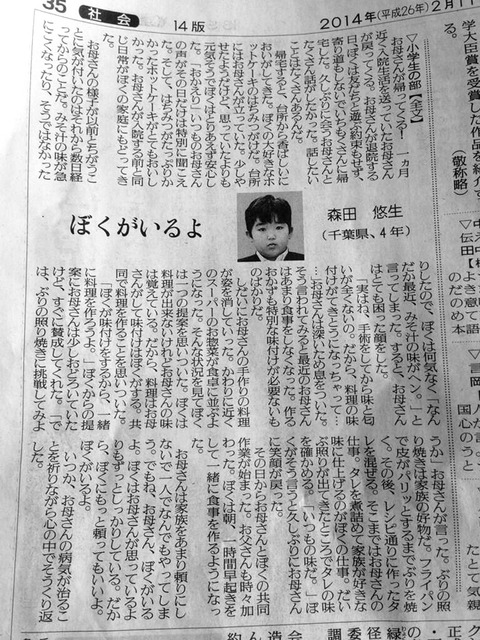 35
社会
14版
2014年(平成26年)2月1
学大臣賞を受賞し
た作品を紹介す
る。
(敬称略)
ぼくがいるよ
森田 悠生
(千葉県、4年)
▽小学生の部【全文】
お母さんが帰ってくる！一ヵ月
近く入院生活を送っていたお母さん
が戻ってくる。お母さんが退院する
日、ぼくは友だちと遊ぶ約束もせず、
寄り道もしないでいちもくさんに帰
宅した。久しぶりに会うお母さんと
たくさん話がしたかった。話したい
ことはたくさんあるんだ。
帰宅すると、台所から香ばしいに
おいがしてきた。ぼくの大好きなホ
ットケーキのはちみつがけだ。台所
にはお母さんが立っていた。少しや
せたようだけど、思っていたよりも
元気そうでぼくはとりあえず安心し
た。「おかえり」いつものお母さん
の声がその日だけは特別に聞こえ
た。そして、はちみつがたっぷりか
かったホットケーキがとてもおいし
かった。お母さんが入院する前と同
じ日常がぼくの家庭にもどってき
た。
お母さんの様子が以前とちがうこ
とに気が付いたのはそれから数日経
ってからのことだ。みそ汁の味が急
にこくなったり、そうではなかった
りしたので、ぼくは何気なく「なん
だか最近、みそ汁の味がヘン。」と
言ってしまった。すると、お母さん
はとても困った顔をした。
「実はね、手術をしてから味と匂
いが全くないの。だから、料理の味
付けがてきとうになっちゃって…
…」お母さんは深いため息をついた。
そう言われてみると最近のお母さん
はあまり食事をしなくなった。作る
おかずも特別な味付けが必要ないも
のばかりだ。
しだいにお母さんの手作りの料理
が姿を消していった。かわりに近く
のスーパーのお惣菜が食卓に並ぶよ
うになった。そんな状況を見てぼく
は一つの提案を思いついた。ぼくは
料理が出来ないけれどお母さんの味
は覚えている。だから、料理はお母
さんがして味付けはぼくがする。共
同で料理を作ることを思いついた。
「ぼくが味付けをするから、一緒
に料理を作ろうよ。」ぼくからの提
案にお母さんは少しおどろいていた
けど、すぐに賛成してくれた。「で
は、ぶりの照り焼きに挑戦してみよ
うか」お母さんが言った。ぶりの照
り焼きは家族の好物だ。フライパン
で皮がパリッとするまでぶりを焼
く。その後、レシピ通りに作ったタ
レを混ぜる。そこまではお母さんの
仕事。タレを煮詰めて家族が好きな
味に仕上げるのがぼくの仕事。だい
ぶ照りが出てきたところでタレの味
を確かめる。「いつもの味だ。」ぼ
くがそう言うと久しぶりにお母さん
に笑顔が戻った。
その日からお母さんとぼくの共同
作業が始まった。お父さんも時々加
わった。ぼくは朝、一時間早起きを
して一緒に食事を作るようになっ
た。
お母さんは家族をあまり頼りにし
ないで一人でなんでもやってしま
う。でもね、お母さん、ぼくがいる
よ。ぼくはお母さんが思っているよ
りもずっとしっかりしている。だか
ら、ぼくにもっと頼ってもいいよ。
ぼくがいるよ。
いつか、お母さんの病気が治るこ
とを祈りながら心の中でそうくり返
した。